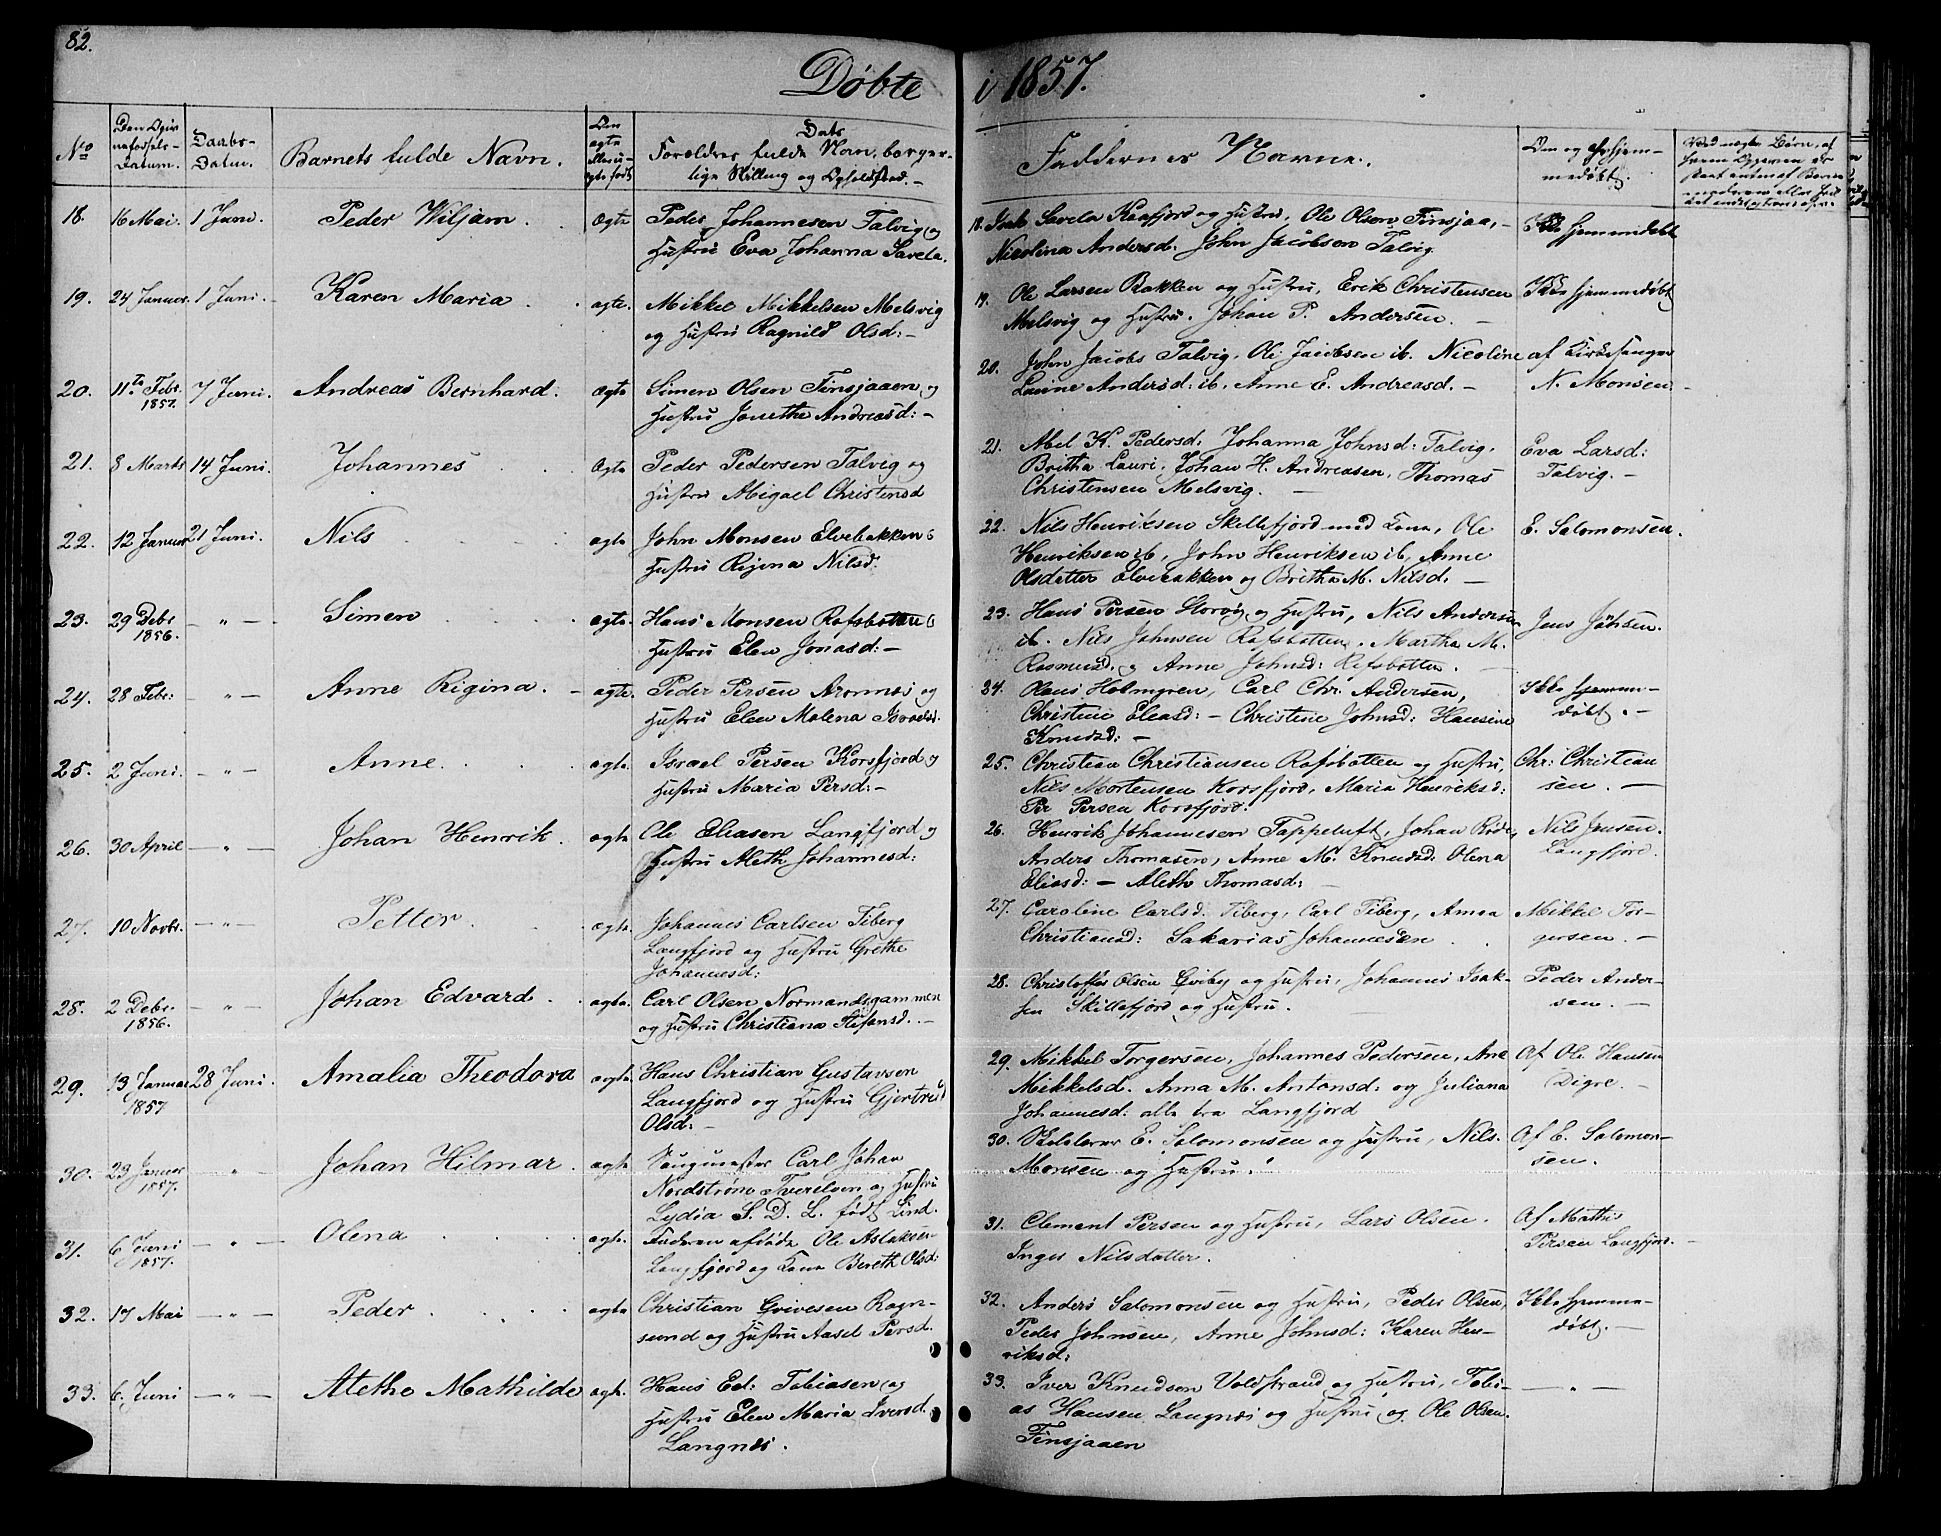 82.
Døbte i 1857.
No
Daabs-
Datum.
Barnets fulde Navn.
Forældres fulde Navn, borger-
lige Stilling og Opholdssted. -
Faddernes Navne.
18. 16 Mai. 1 Juni. Peder Wiljam. Ægte Peder Johannesen Talvig og
Hustru Eva Johanna Savela.
18. Isak Savela Kaafjord og Hustru, Ole Olsen Finsjaa,
Nicolina Andersd. John Jacobsen Talvig
Ikke hjemmedøbt
19. 24 Januar. 1 Juni. Karen Maria ægte. Mikkel Mikkelsen Melsvig
og Hustru Ragnild Olsd: -
19. Ole Larsen Bakken og Hustru, Erik Christensen
Melsvig og Hustru. Johan P. Andersen. -
Ikke hjemmedøbt
20. 11te Febr. 1857. 7 Juni. Andreas Bernhard. Ægte Simen Olsen Finsjaaen og
Hustru Jonethe Andreasd: -
20. John Jacobs Talvig, Ole Jacobsen ib. Nicoline
Lavine Andersd: ib. Anne E. Andreasd. -
af Kirkesanger
N. Monsen. -
21. 8 Marts 14 Juni. Johannes Ægte Peder Pedersen Talvig og
Hustru Abigael Christensd
21. Abel K. Pedersd. Johanna Johnsd: Talvig,
Britha Lauri, Johan H. Andreasen, Thomas
Christensen Melsvig. -
Eva Larsd:
Talvig. -
22. 12 Januar 21 Juni. Nils ægte John Monsen Elvebakken &
Hustru Rigina Nilsd:
22. Nils Henriksen Skillefjord med Kone, Ole
Henriksen ib, John Henriksen ib, Anne
Olsdatter Elvebakken og Britha M. Nilsd: -
E. Salomonsen.
23. 29 Debr. 1856. - " - Simen ægte. Hans Monsen Rafsbotten &
Hustru Elen Jonasd: -
23. Hans Persen Storvig og Hustru, Nils Andersen
ib. Nils Johnsen Rafsbotten, Martha M.
Rasmusd. og Anne Johnsd: Rafsbotten.
Jens Johsen.
24. 28 Febr: - " - Anne Rigina. - ægte. Peder Persen Aronnes og
Hustru Elen Malena Israelsd.
24. Olaus Holmgren, Carl Chr. Andersen,
Christine Eleasd: - Christine Johnsd: Hansine
Knudsd: -
Ikke hjemme-
døbt. -
25. 2 Juni. - " - Anne. ægte. Israel Persen Korsfjord og
Hustru Maria Persd: -
25. Christian Christiansen Rafsbotten og Hustru,
Nils Mortensen Korsfjord, Maria Henriksd:
Pr Persen Korsfjord.
Chr: Christian
sen. -
26. 30 April - " - Johan Henrik. ægte. Ole Eliasen Langfjord og
Hustru Aleth Johannesd:
26. Henrik Johannesen Tappeluft, Johan Ride,
Anders Thomasen, Anne M. Knudsd: Olena
Eliasd: - Aleth Thomasd: -
Nils Jensen.
Langfjord.
27. 10 Novbr. - " - Petter. ægte. Johannes Carlsen Fiberg
Langfjord og Hustru Grethe
Johannesd:
27. Caroline Carlsd. Fiberg, Carl Fiberg, Amaa
Christiansd: Sakarias Johannesen
Mikkel Tor-
gersen. -
28. 2 Debr. 1856. - " - Johan Edvard. ægte. Carl Olsen Normandsgammen
og Hustru Christiana Stefansd. -
28. Christoffer Olsen Goiby og Hustru, Johannes Isak-
sen Skillefjord og Hustru.
Peder Ander-
sen. -
29. 13 Januar 1857 28 Juni. Amalia Theodora ægte. Hans Christian Gustavson
Langfjord og Hustru Gjertrud
Olsd: -
29. Mikkel Torgersen, Johannes Pedersen, Ane
Mikkelsd. Anna M. Antonsd: og Juliana
Johannesd: alle fra Langfjord
Af Ole Hansen
Digre. -
30. 23 Januar 1857. - " - Johan Hilmar. ægte Saugmester Carl Johan
Nordstrøm Tverelven og Hustru
Lydia S. D. L. født Lind.
30. Skolelærer E. Salomonsen og Hustru, Nils
Monsen og Hustru.
Af E. Salomon-
sen.
31. 6 Juni 1857. - " - Olena ægte. Faderen afdøde Ole Aslaksen
Langfjord og Kone Bereth Olsd:
31. Clement Persen og Hustru, Lars Olsen.
Inger Nilsdatter.
Af Mathis
Persen Langfjord. -
32. 17 Mai - " - Peder ægte Christian Grivesen Rogn-
sund og Hustru Aasel Persd.
32. Anders Salomonsen og Hustru, Peder Olsen,
Peder Johnsen, Anne Johnsd: Karen Hen-
riksd:
Ikke hjemme-
døbt. -
33. 6. Juni - " - Alethe Mathilde ægte. Hans Ed: Tobiasen og
Hustru Elen Maria Iversd.
Langnes.
33. Iver Knudsen Voldstrand og Hustru, Tobi-
as Hansen Langnes og Hustru og Ole Olsen
Finsjaaen
- " -